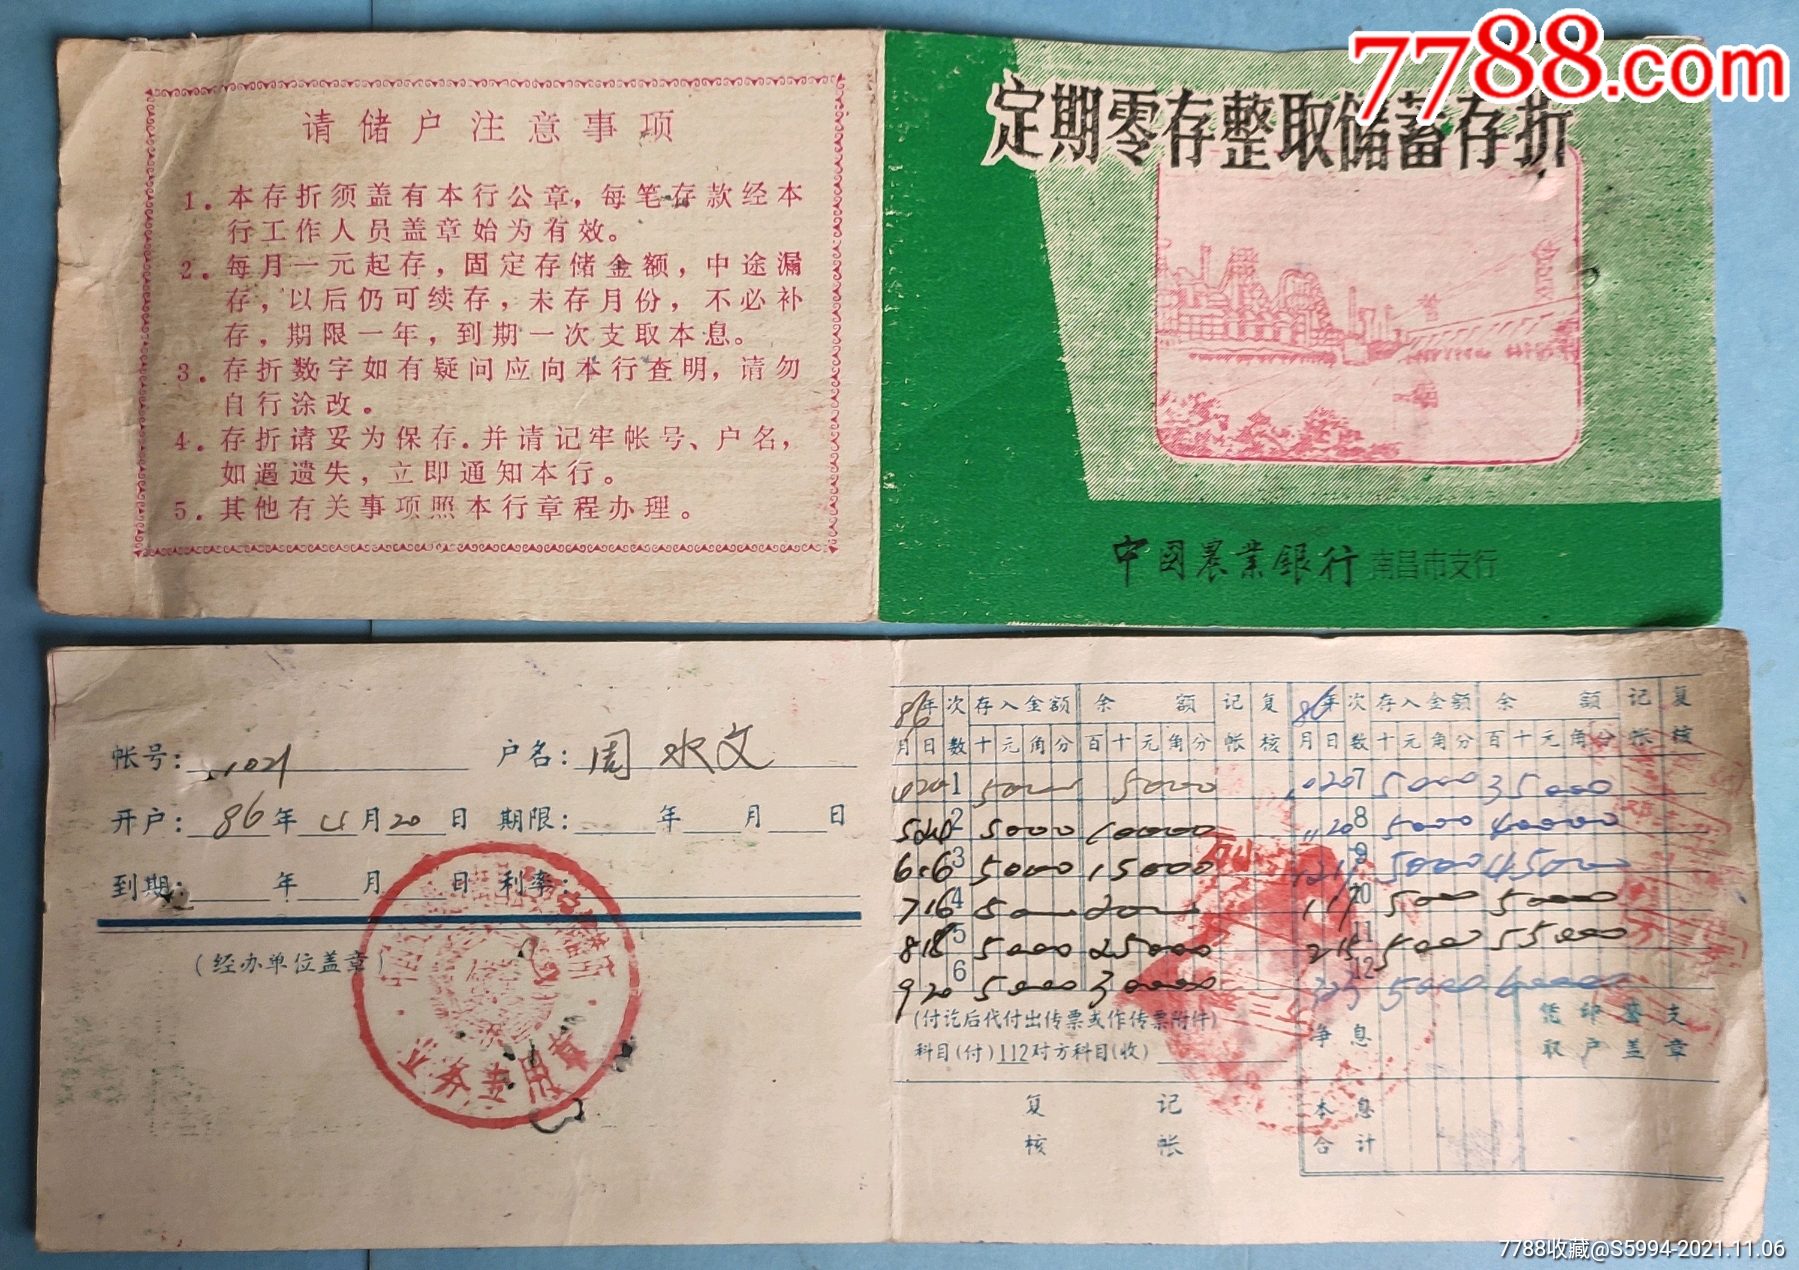 7788.com
请储户注意事项
1.本存折须盖有本行公章,每笔存款经本
行工作人员盖章始为有效。
2.每月一元起存,固定存储金额,中途漏
存,以后仍可续存,未存月份,不必补
存,期限一年,到期一次支取本息。
3.存折数字如有疑问应向本行查明,请勿
自行涂改。
4.存折请妥为保存.并请记牢帐号、户名,
如遇遗失,立即通知本行。
5.其他有关事项照本行章程办理。
定期零存整取储蓄存折
中國農業銀行 南昌市支行
帐号: 户名:周水文
开户:86年4月20日 期限: 年 月 日
到期: 年 月 日 利率:
(经办单位盖章)
业务专用章
86年 次 存入金额 余额 记 复 86年 次 存入金额 余额 记 复
月 日 数 十元角分 百十元角分 帐 核 月 日 数 十元角分 百十元角分 帐 核
4 20 1 5000 5000 10 20 7 5000 35000
2 5000 10000 11 20 8 5000 40000
6 6 3 5000 15000 9 5000 45000
7 16 4 5000 20000 1 17 10 5000 50000
8 18 5 5000 25000 2 15 11 5000 55000
9 20 6 5000 30000 3 23 12 5000 60000
(付讫后代付出传票或作传票附件) 净息 凭印鉴支
科目(付)112对方科目(收) 取户盖章
复 记 本息
核 帐 合计
7788收藏@S5994-2021.11.06